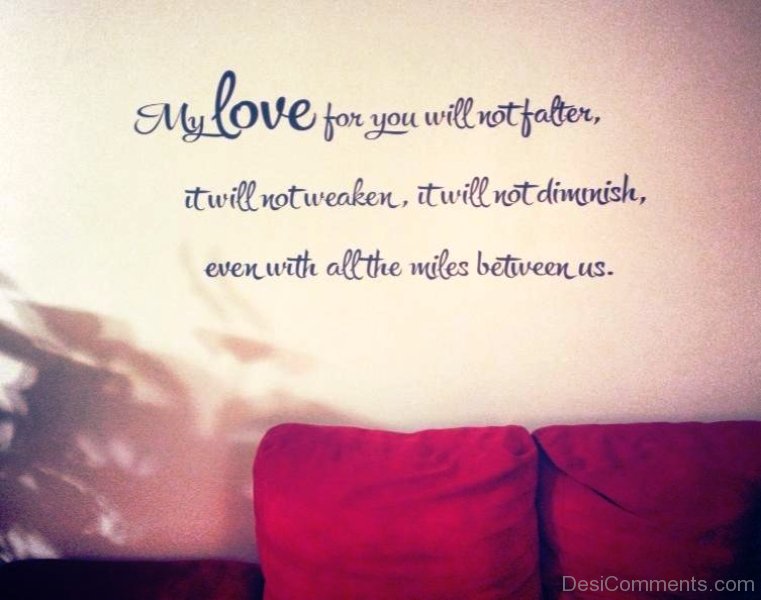 My love for you will not falter,
it will not weaken, it will not diminish,
even with all the miles between us.
DesiComments.com